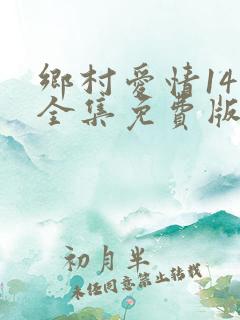 鄉村愛情14
全集免費版
初月半
未经同意禁止转载